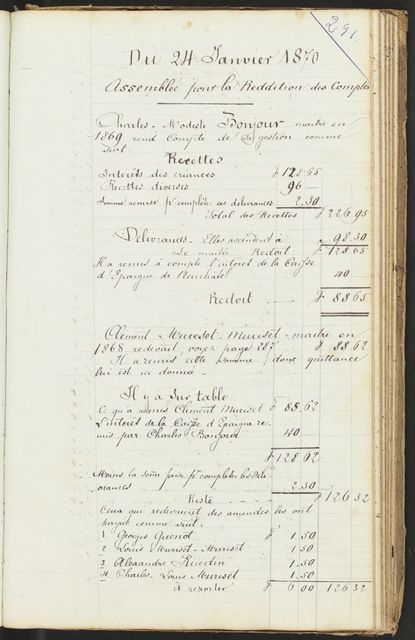 291.
Du 24 Janvier 1870
Assemblée pour la Reddition des Comptes
Charles-Modeste Bonjour maitre en
1869 rend Compte de sa gestion comme
suit.
Recettes
Intérêts des créances F 128 65
Recettes diverses 96 —
Somme remise pr complèter ses délivrances 2.30
Total des Recettes F 226 95
Délivrances. Elles ascendent à „ 98.30
Le maitre Redoit F 128 65
Il a remis à compte l'intérêt de la Caisse
d'Epargne de Neuchâtel 40
Redoit F 88 65
Clement Muriset-Muriset maitre en
1868 redevait, voyez page 287 F 88.62
Il a remis cette somme, donc quittance
lui est ici donnée.
Il y a sur table
Ce qu'a remis Clément Muriset F 88.62
L'intérêt de la Caisse d'Epargne re-
mis par Charles Bonjour 40
F 128 62
Moins la some prise pr completer les Déli-
vrances 2.30
Reste F 126 32
Ceux qui redevaient des amendes les ont
payé comme suit.
1. Georges Quenot F 1.50
2 Louis Muriset-Muriset 1.50
3 Alexandre Ruedin 1.50
4 Charles-Louis Muriset 1.50
A reporter F 6 00 126 32